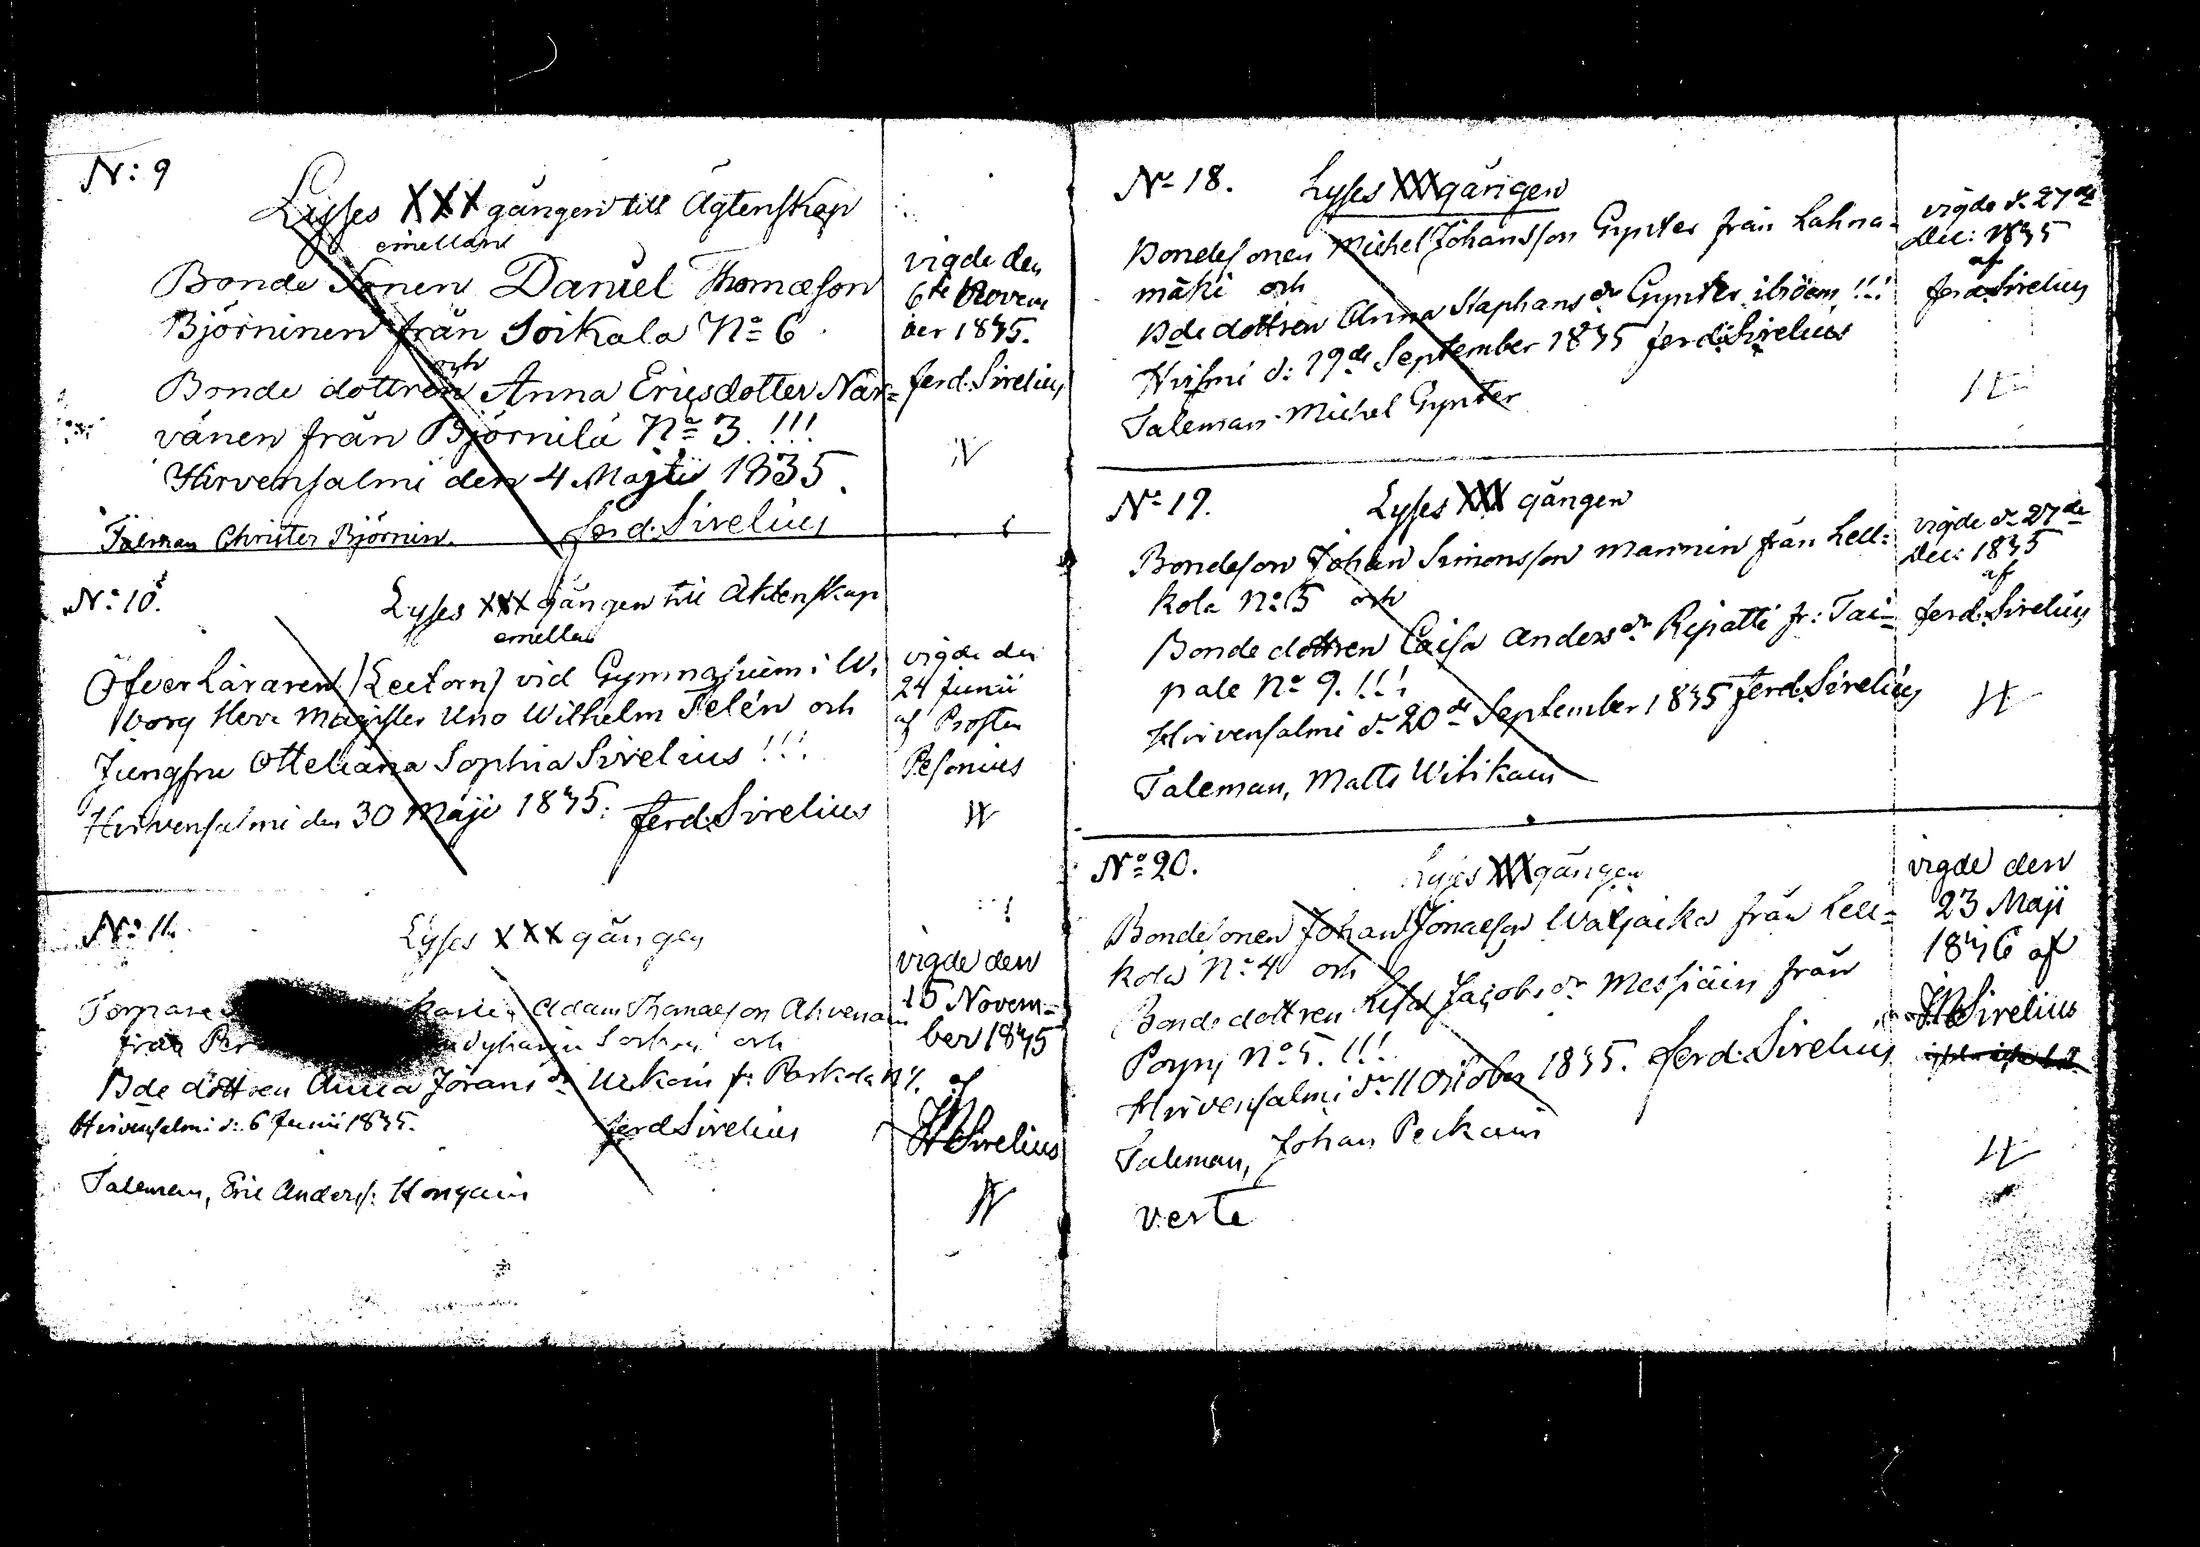 N: 9
Lyses XXX gången till Ägtenskap
emellan
Bonde Sonen Daniel Thomæson
Björninen från Soikala No 6
och
Bonde dottren Anna Ericsdotter När=
vänen från Björnilä No 3. !!!
Hirvensalmi den 4 Maji 1835.
Talman Christer Björnin. ferd. Sirelius
vigde den
6te Novem
ber 1835.
ferd. Sirelius
No 10.
Lyses XXX gången till Äktenskap
emellan
Öfverläraren (Lectorn) vid Gymnasium i W.
borg Herr Magister Uno Wilhelm Telén och
Jungfru Otteliana Sophia Sirelius !!!
Hirvensalmi den 30 Maji 1835. ferd. Sirelius
vigde den
24 Junii
af Prosten
Pesonius
No 11.
Lyses XXX gången
Adam Thomæson Ahvenain
från och
Bde dottren Anna Jörans dr f: Parkola
Hirvensalmi d: 6 Junii 1835. ferd Sirelius
Taleman, Eric Anders: Hongain
vigde den
15 Novem=
ber 1835
af
Sirelius
No 18. Lyses XXX gången
Bondesonen Michel Johansson Gynter från Lahna=
mäki och
Bde dottren Anna Staphans dr Gynter ibidem !!!
Hirsmi d: 19de September 1835 ferd: Sirelius
Taleman Michel Gynter
vigde d. 27de
Dec: 1835
af
ferd Sirelius
No 19. Lyses XXX gången
Bondeson Johan Simonsson Mannin från Lell=
kola No 5 och
Bonde dottren Caisa Anders dr Ripatti fr: Tai=
pale No 9. !!!
Hirvensalmi d. 20de September 1835 ferd. Sirelius
Taleman, Matts Witikain
vigde d. 27de
Dec: 1835
af
ferd. Sirelius
No 20. Lyses XXX gången
Bondesonen Johan Jonaeson från Lell=
kola No 4 och
Bonde dottren Lisa Jacobs dr från
No 5. !!!
Hirvensalmi d. 11 October 1835. ferd. Sirelius
Taleman, Johan Peckain
verte
vigde den
23 Maji
1836 af
Sirelius